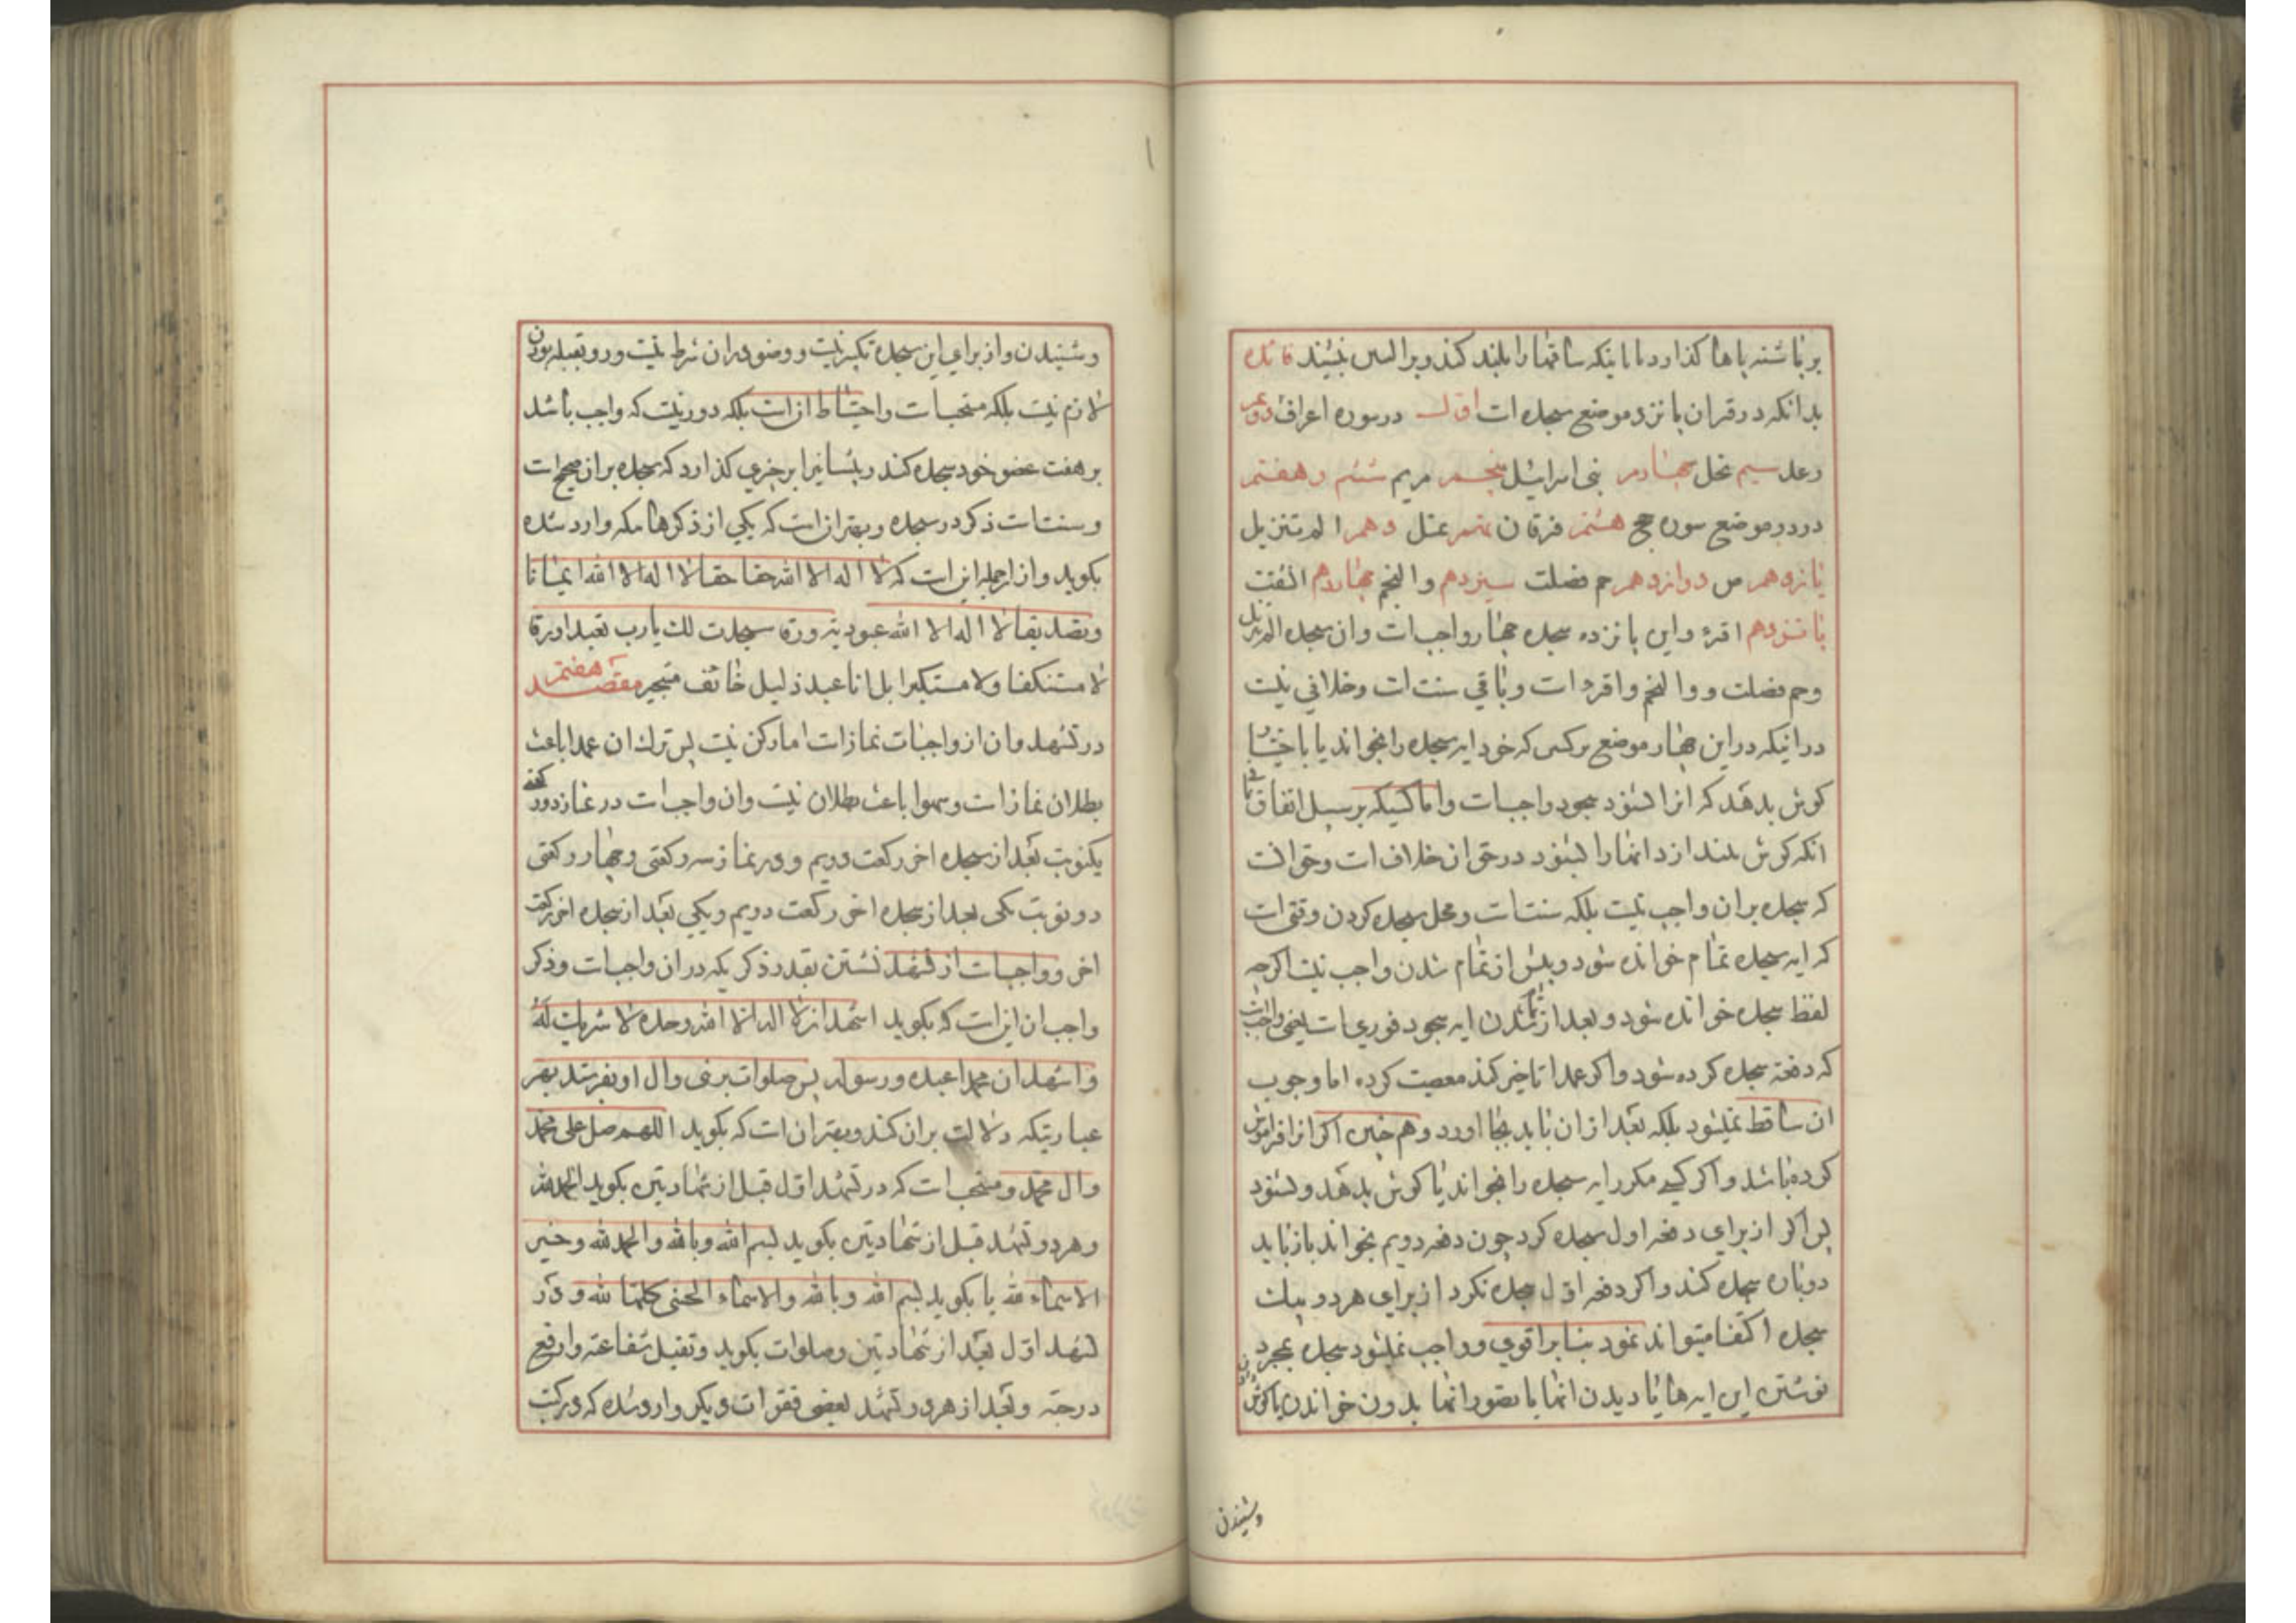 بر پاشنه پاها کذارد تا اینکه ساقها را بلند کند و بر الیین نشیند فائده
بدانکه در قران پانزده موضع سجده است اول در سوره اعراف دوم
رعد سیم نحل چهارم بنی اسرائیل پنجم مریم ششم و هفتم
در دو موضع سوره حج هشتم فرقان نهم نمل دهم الم تنزیل
یازدهم ص دوازدهم حم فصلت سیزدهم والنجم چهاردهم انشقت
پانزدهم اقرء و این پانزده سجده چهار واجب است وان سجده الم تنزیل
وحم فصلت و والنجم واقرء است وباقی سنت است وخلافی نیست
در اینکه در این چهار موضع هر کس که خود ایه سجده را بخواند یا باختیار
کوش بدهد که انرا بشنود سجود واجب است واما کسیکه بر سبیل اتفاق بی
انکه کوش بیندازد انها را بشنود در حق ان خلاف است وحق انست
که سجده بر ان واجب نیست بلکه سنت است ومحل سجده کردن وقتی است
که ایه سجده تمام خوانده شود وپیش از تمام شدن واجب نیست اکرچه
لفظ سجده خوانده شود وبعد از تمام شدن ایه سجود فوری است یعنی واجب است
که دفعة سجده کرده شود واکر عمدا تاخیر کند معصیت کرده اما وجوب
ان ساقط نمیشود بلکه بعد از ان باید بجا اورد وهم چنین اکر انرا فراموش
کرده باشد واکر کسی مکرر ایه سجده را بخواند یا کوش بدهد وبشنود
پس اکر از برای دفعه اول سجده کرد چون دفعه دویم بخواند باز باید
دوباره سجده کند واکر دفعه اول سجده نکرد از برای هر دو بیک
سجده اکتفا میتواند نمود بنا بر اقوی و واجب نمیشود سجده بمجرد
نوشتن این ایه ها یا دیدن انها یا تصور انها بدون خواندن یا کوش
وشنیدن
وشنیدن واز برای این سجده تکبیر نیست ووضو در ان شرط نیست ورو بقبله بودن
لازم نیست بلکه مستحب است واحتیاط از است بلکه دور نیست که واجب باشد
بر هفت عضو خود سجده کند وپیشانیرا بر چیزی کذارد که سجده بر ان صحیح است
وسنت است ذکر در سجده وبهتر انست که یکی از ذکرها که وارد شده
بکوید واز انجمله این است که لا اله الا الله حقا حقا لا اله الا الله ایمانا
وتصدیقا لا اله الا الله عبودیة ورقا سجدت لک یا رب تعبدا ورقا
لا مستنکفا ولا مستکبرا بل انا عبد ذلیل خائف مستجیر مقصد هفتم
در تشهد وان از واجبات نماز است اما رکن نیست پس ترک ان عمدا باعث
بطلان نماز است وسهوا باعث بطلان نیست وان واجب است در نماز دو رکعتی
یکنوبت بعد از سجده اخر رکعت دویم ودر نماز سه رکعتی وچهار رکعتی
دو نوبت یکی بعد از سجده اخر رکعت دویم ویکی بعد از سجده اخر رکعت
اخر وواجب است از تشهد نشستن بقدر ذکریکه در ان واجب است وذکر
واجب ان این است که بکوید اشهد ان لا اله الا الله وحده لا شریک له
واشهد ان محمدا عبده ورسوله پس صلوات بر نبی وال او بفرستد بهر
عبارتیکه دلالت بر ان کند وبهتر ان است که بکوید اللهم صل علی محمد
وال محمد ومستحب است که در تشهد اول قبل از شهادتین بکوید الحمد لله
وهر دو تشهد قبل از شهادتین بکوید بسم الله وبالله والحمد لله وخیر
الاسماء لله یا بکوید بسم الله وبالله والاسماء الحسنی کلها لله ودر
تشهد اول بعد از شهادتین وصلوات بکوید وتقبل شفاعته وارفع
درجته وبعد از هر دو تشهد بعضی فقرات دیکر وارد شده که در کتب